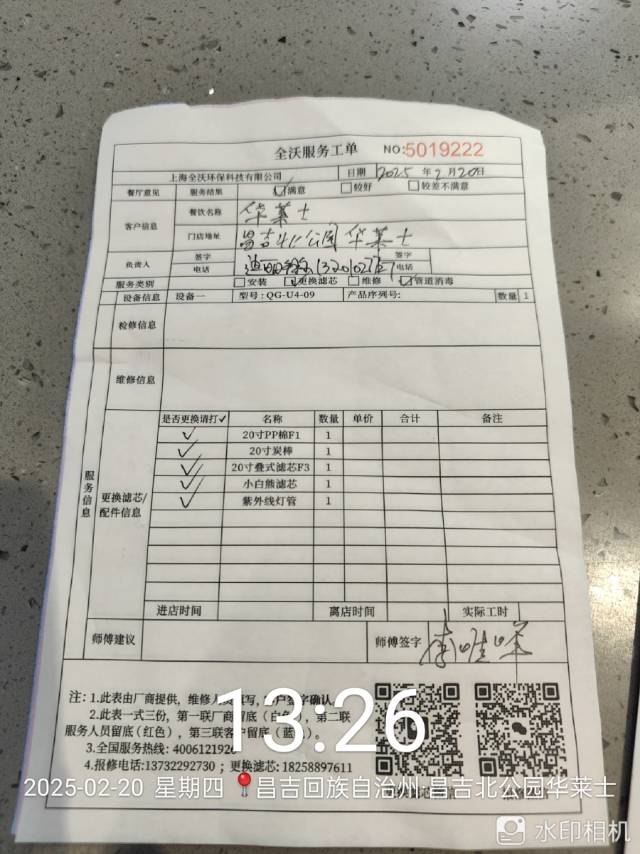 全沃服务工单 NO:5019222
上海全沃环保科技有限公司 日期 2025 年 2 月 20 日
餐厅意见 服务结果 ☑满意 □较好 □较差不满意
客户信息 餐饮名称 华莱士
门店地址 昌吉北公园 华莱士
负责人 签字 签字
电话 电话
服务类别 □安装 ☑更换滤芯 □维修 ☑管道消毒
设备信息 设备一 型号:QG-U4-09 产品序列号: 数量 1
检修信息
维修信息
服务信息
更换滤芯/配件信息
是否更换请打✓ 名称 数量 单价 合计 备注
✓ 20寸PP棉F1 1
✓ 20寸炭棒 1
✓ 20寸叠式滤芯F3 1
✓ 小白熊滤芯 1
✓ 紫外线灯管 1
进店时间 离店时间 实际工时
师傅建议 师傅签字
注:1.此表由厂商提供,维修人员填写,客户签字确认。
2.此表一式三份,第一联厂商留底(白色),第二联
服务人员留底(红色),第三联客户留底(蓝色)。
3.全国服务热线:4006121926
4.报修电话:13732292730 ;更换滤芯:18258897611
13:26
2025-02-20 星期四 昌吉回族自治州·昌吉北公园华莱士
水印相机